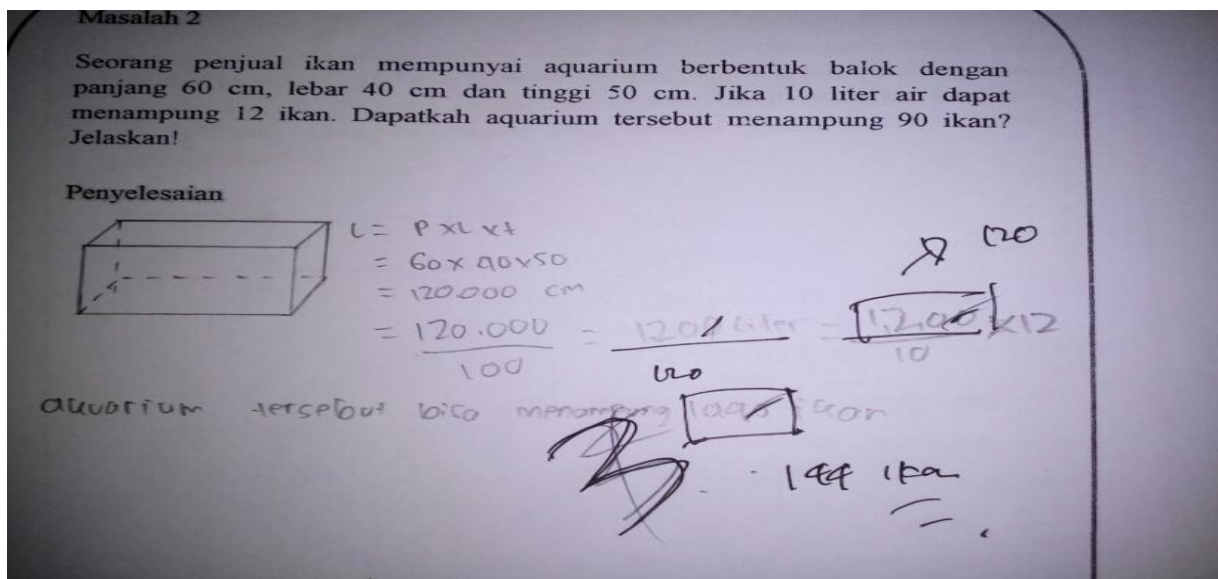 Masalah 2
Seorang penjual ikan mempunyai aquarium berbentuk balok dengan
panjang 60 cm, lebar 40 cm dan tinggi 50 cm. Jika 10 liter air dapat
menampung 12 ikan. Dapatkah aquarium tersebut menampung 90 ikan?
Jelaskan!
Penyelesaian
L = P x L x t
= 60 x 40 x 50
120
= 120.000 cm
= 120.000 / 100 = liter = / 10 x 12
120
aquarium tersebut bisa menampung ikan
3
144 ika